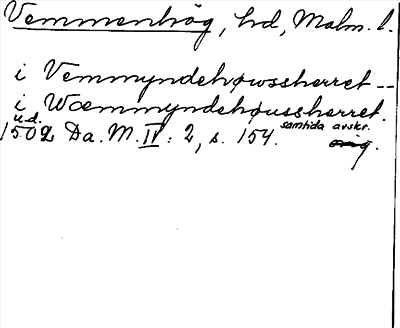 Vemmenhög, hd, Malm. l.
i Vemmyndehøwssherret --
i Wæmmyndehøussherret.
u.d. samtida avskr.
1502 Da. M. IV: 2, s. 154. orig.